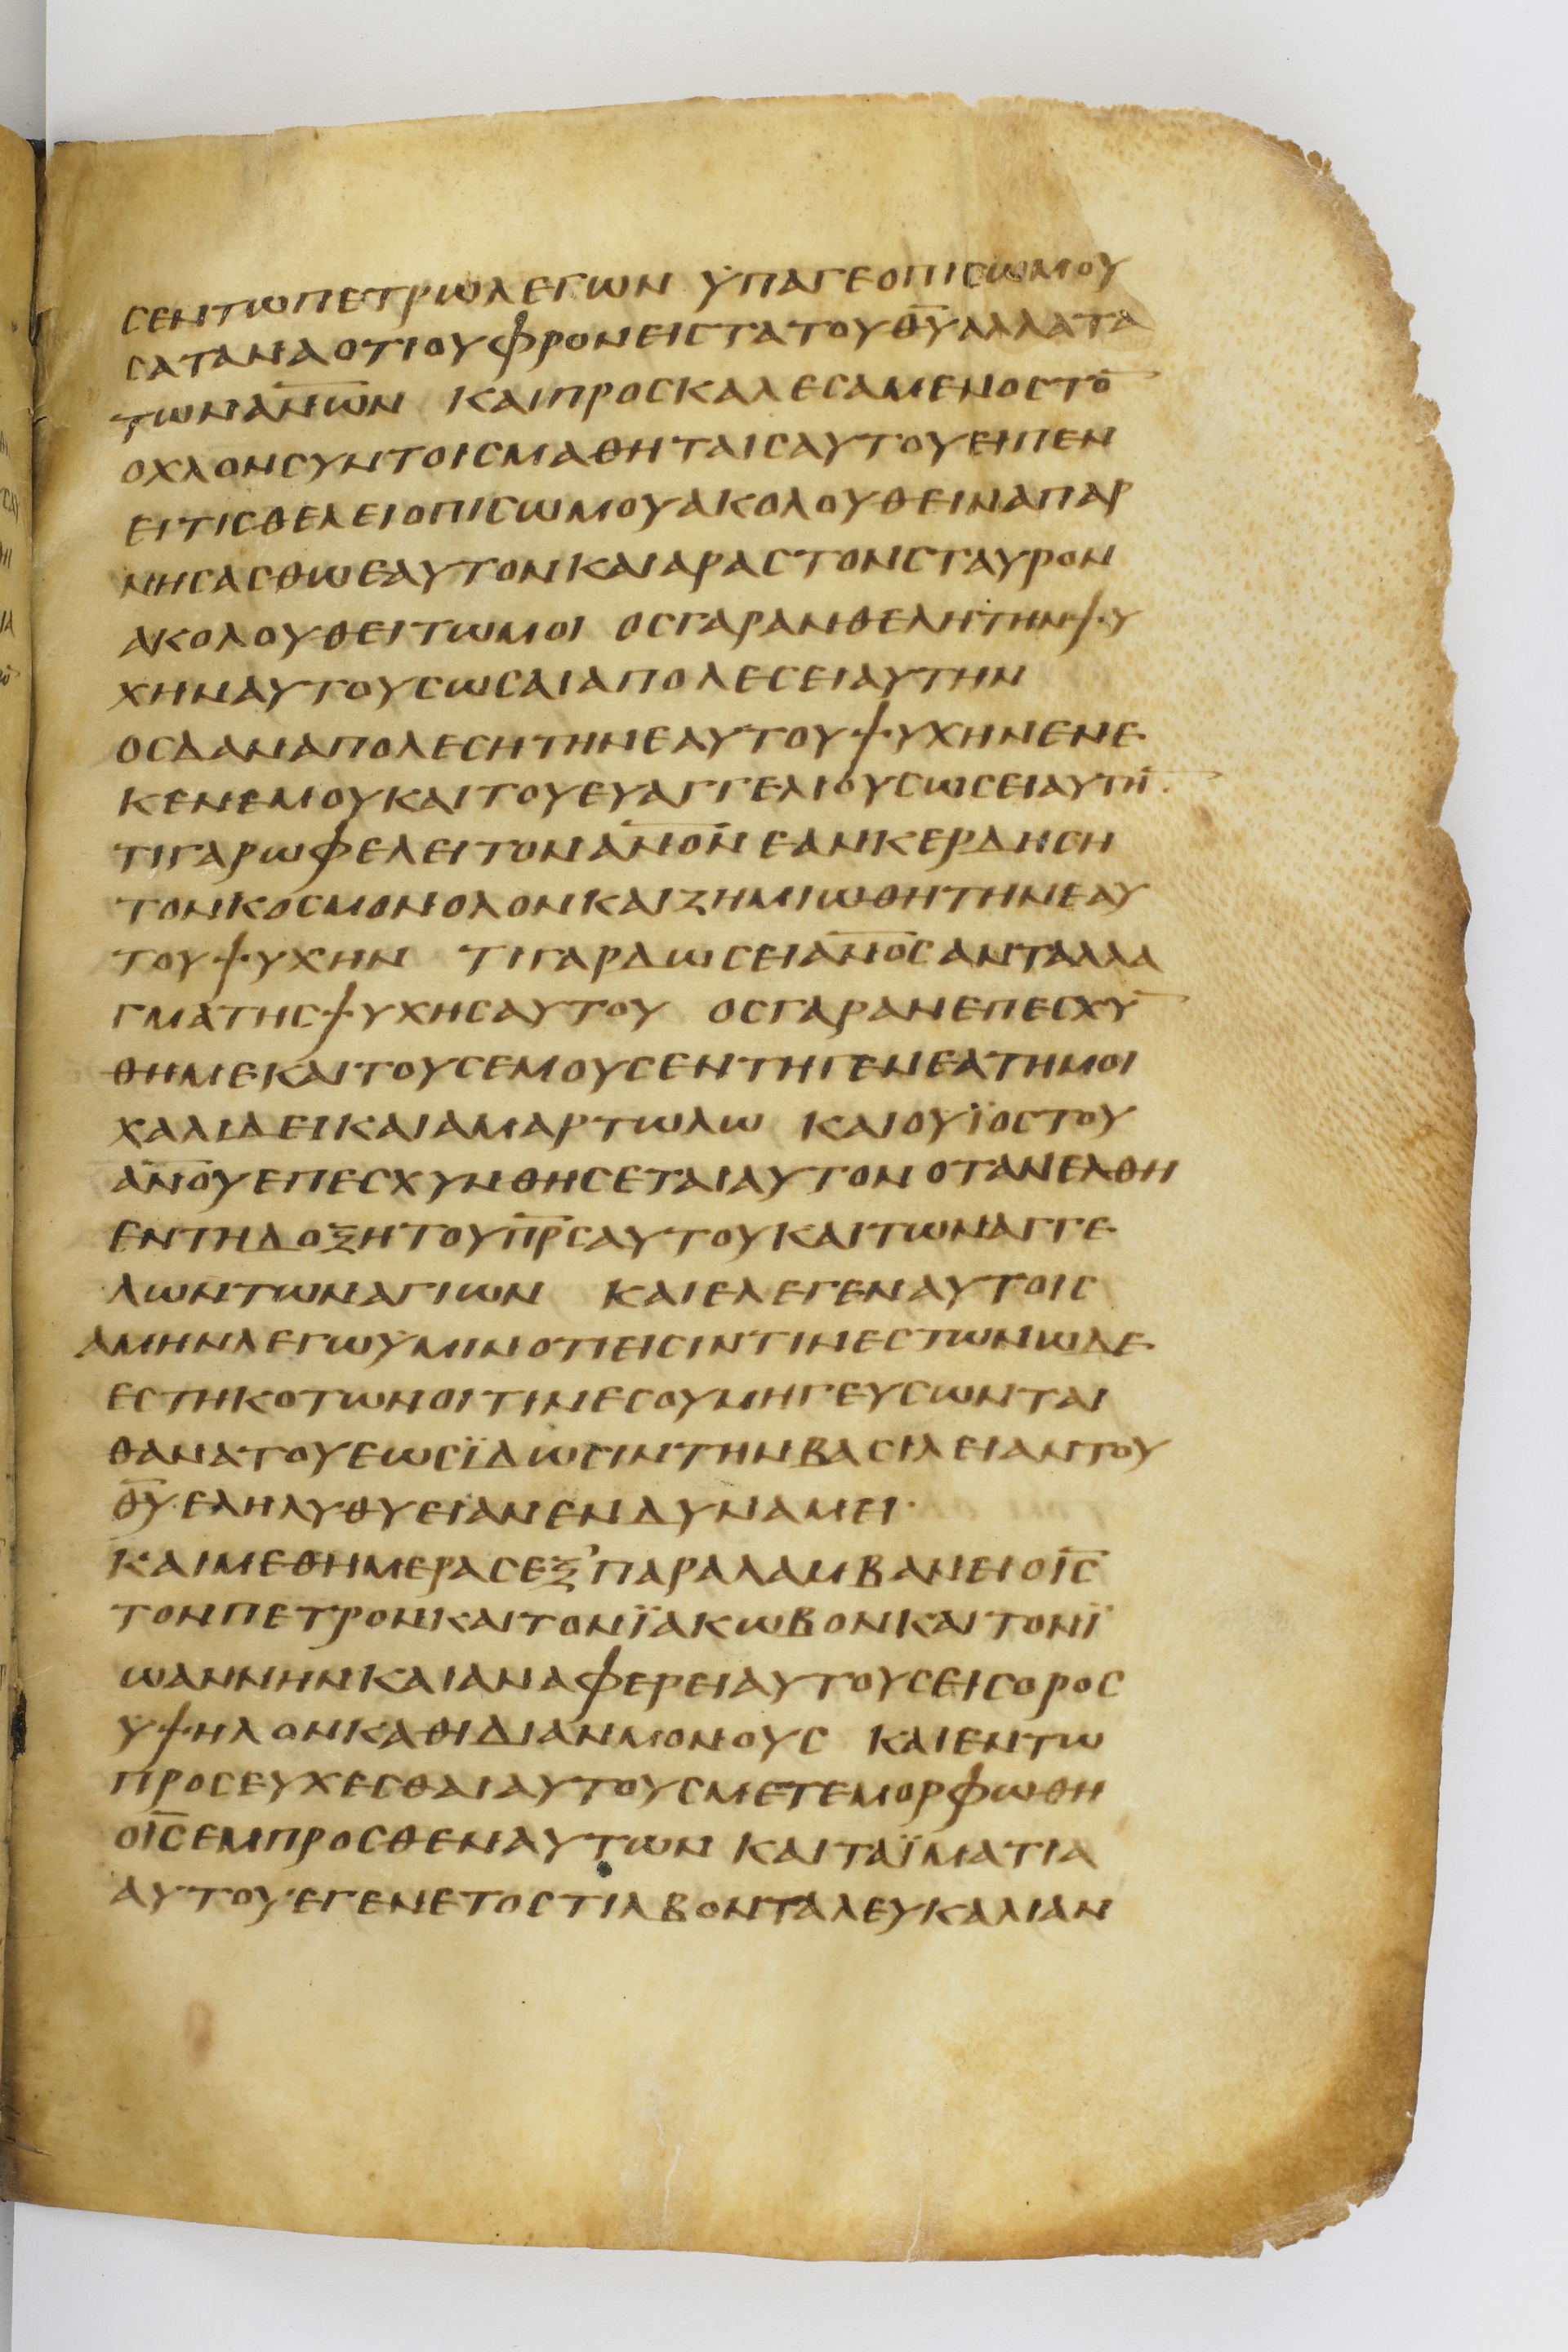 ϲεντωπετρωλεγων ϋπαγεοπιϲωμου
ϲαταναοτιουφρονειϲτατουθ̅υ̅αλλατα
τωνα̅ν̅ω̅ν̅ καιπροϲκαλεϲαμενοϲτο̅
οχλονϲυντοιϲμαθηταιϲαυτουειπεν
ειτιϲθελειοπιϲωμουακολουθειναπαρ
νηϲαϲθωεαυτονκαιαραϲτονϲταυρον
ακολουθειτωμοι οϲγαρανθελητηνψυ
χηναυτουϲωϲαιαπολεϲειαυτην
οϲδαναπολεϲητηνεαυτουψυχηνενε
κενεμουκαιτουευαγγελιουϲωϲειαυτη̅.
τιγαρωφελειτονα̅ν̅ο̅ν̅εανκερδηϲη
τονκοϲμονολονκαιζημιωθητηνεαυ
τουψυχην τιγαρδωϲεια̅ν̅ο̅ϲ̅ανταλλα
γματηϲψυχηϲαυτου οϲγαρανεπεϲχυ̅
θημεκαιτουϲεμουϲεντηγενεατημοι
χαλιδεικαιαμαρτωλω καιουϊοϲτου
α̅ν̅ο̅υ̅επεϲχυνθηϲεταιαυτονοτανελθη
εντηδοξητουπ̅ρ̅ϲ̅αυτουκαιτωναγγε
λωντωναγιων καιελεγεναυτοιϲ
αμηνλεγωϋμινοτιειϲιντινεϲτωνωδε
εϲτηκοτωνοιτινεϲουμηγευϲωνται
θανατουεωϲϊδωϲιντηνβαϲιλειαντου
θ̅υ̅εληλυθυειανενδυναμει·
καιμεθημεραϲεξ'παραλαμβανειοι̅ϲ̅
τονπετρονκαιτονϊακωβονκαιτονϊ
ωαννηνκαιαναφερειαυτουϲειϲοροϲ
ϋψηλονκαθιδιανμονουϲ καιεντω
προϲευχεϲθαιαυτουϲμετεμορφωθη
οι̅ϲ̅εμπροϲθεναυτων καιταϊματια
αυτουεγενετοϲτιλβονταλευκαλιαν